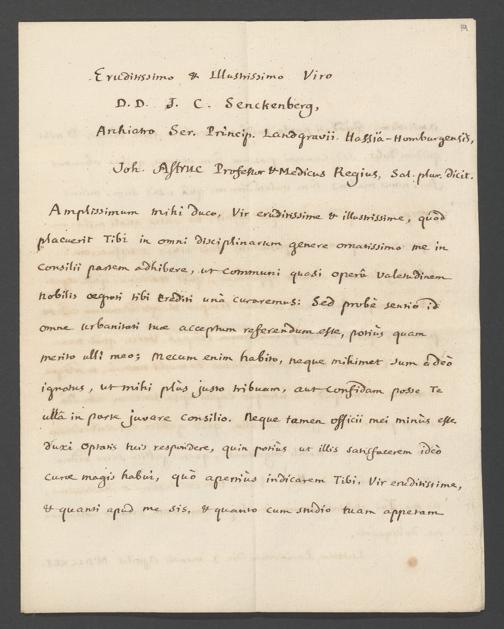 19
Eruditissimo & Illustrissimo Viro
D. D. J. C. Senckenberg,
Archiatro Ser. Princip. Landgravii Hassiæ-Homburgensis,
Joh. Astruc Professor & Medicus Regius, Sal. plur. dicit.
Amplissimum mihi duco, Vir eruditissime & illustrissime, quod
placuerit Tibi in omni disciplinarum genere ornatissimo me in
consilii partem adhibere, ut communi quasi operâ valetudinem
nobilis ægroti tibi crediti unà curaremus: Sed probè sentio id
omne urbanitati tuæ acceptum referendum esse, potius quam
merito ulli meo; Mecum enim habito, neque mihimet sum adeò
ignotus, ut mihi plùs justo tribuam, aut confidam posse Te
ullâ in parte juvare consilio. Neque tamen officii mei minùs esse
duxi optatis tuis respondere, quin potiùs ut illis satisfacerem ideò
curæ magis habui, quò apertius indicarem Tibi, Vir eruditissime,
& quanti apud me sis, & quanto cum studio tuam appetam